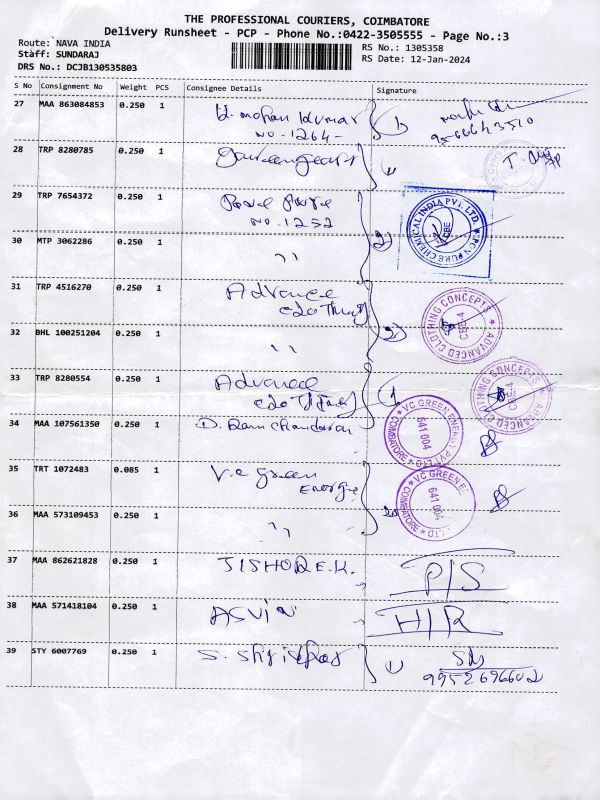 THE PROFESSIONAL COURIERS, COIMBATORE
Delivery Runsheet - PCP - Phone No.:0422-3505555 - Page No.:3
Route: NAVA INDIA
Staff: SUNDARAJ
DRS No.: DCJB130535803
RS No.: 1305358
RS Date: 12-Jan-2024
S No Consignment No Weight PCS Consignee Details Signature
27 MAA 863084853 0.250 1 Mohan Kumar
NO. 1264-
28 TRP 8280785 0.250 1
29 TRP 7654372 0.250 1
NO. 1252
PON PURE CHEMICAL INDIA PVT. LTD. CBE
30 MTP 3062286 0.250 1 ''
31 TRP 4516270 0.250 1 Advance
ADVANCED CLOTHING CONCEPTS CBE-4
32 BHL 100251204 0.250 1 ''
33 TRP 8280554 0.250 1 Advanced
ADVANCED CLOTHING CONCEPTS CBE-4
34 MAA 107561350 0.250 1 D. Ram chandaran
VC GREEN ENERGY PVT LTD COIMBATORE 641 004
35 TRT 1072483 0.085 1 V.c Green
Energie
VC GREEN E COIMBATORE 641 004 LTD
36 MAA 573109453 0.250 1 ''
37 MAA 862621828 0.250 1 JISHORE.K. P/S
38 MAA 571418104 0.250 1 ASVIN H/R
39 STY 6007769 0.250 1 S.